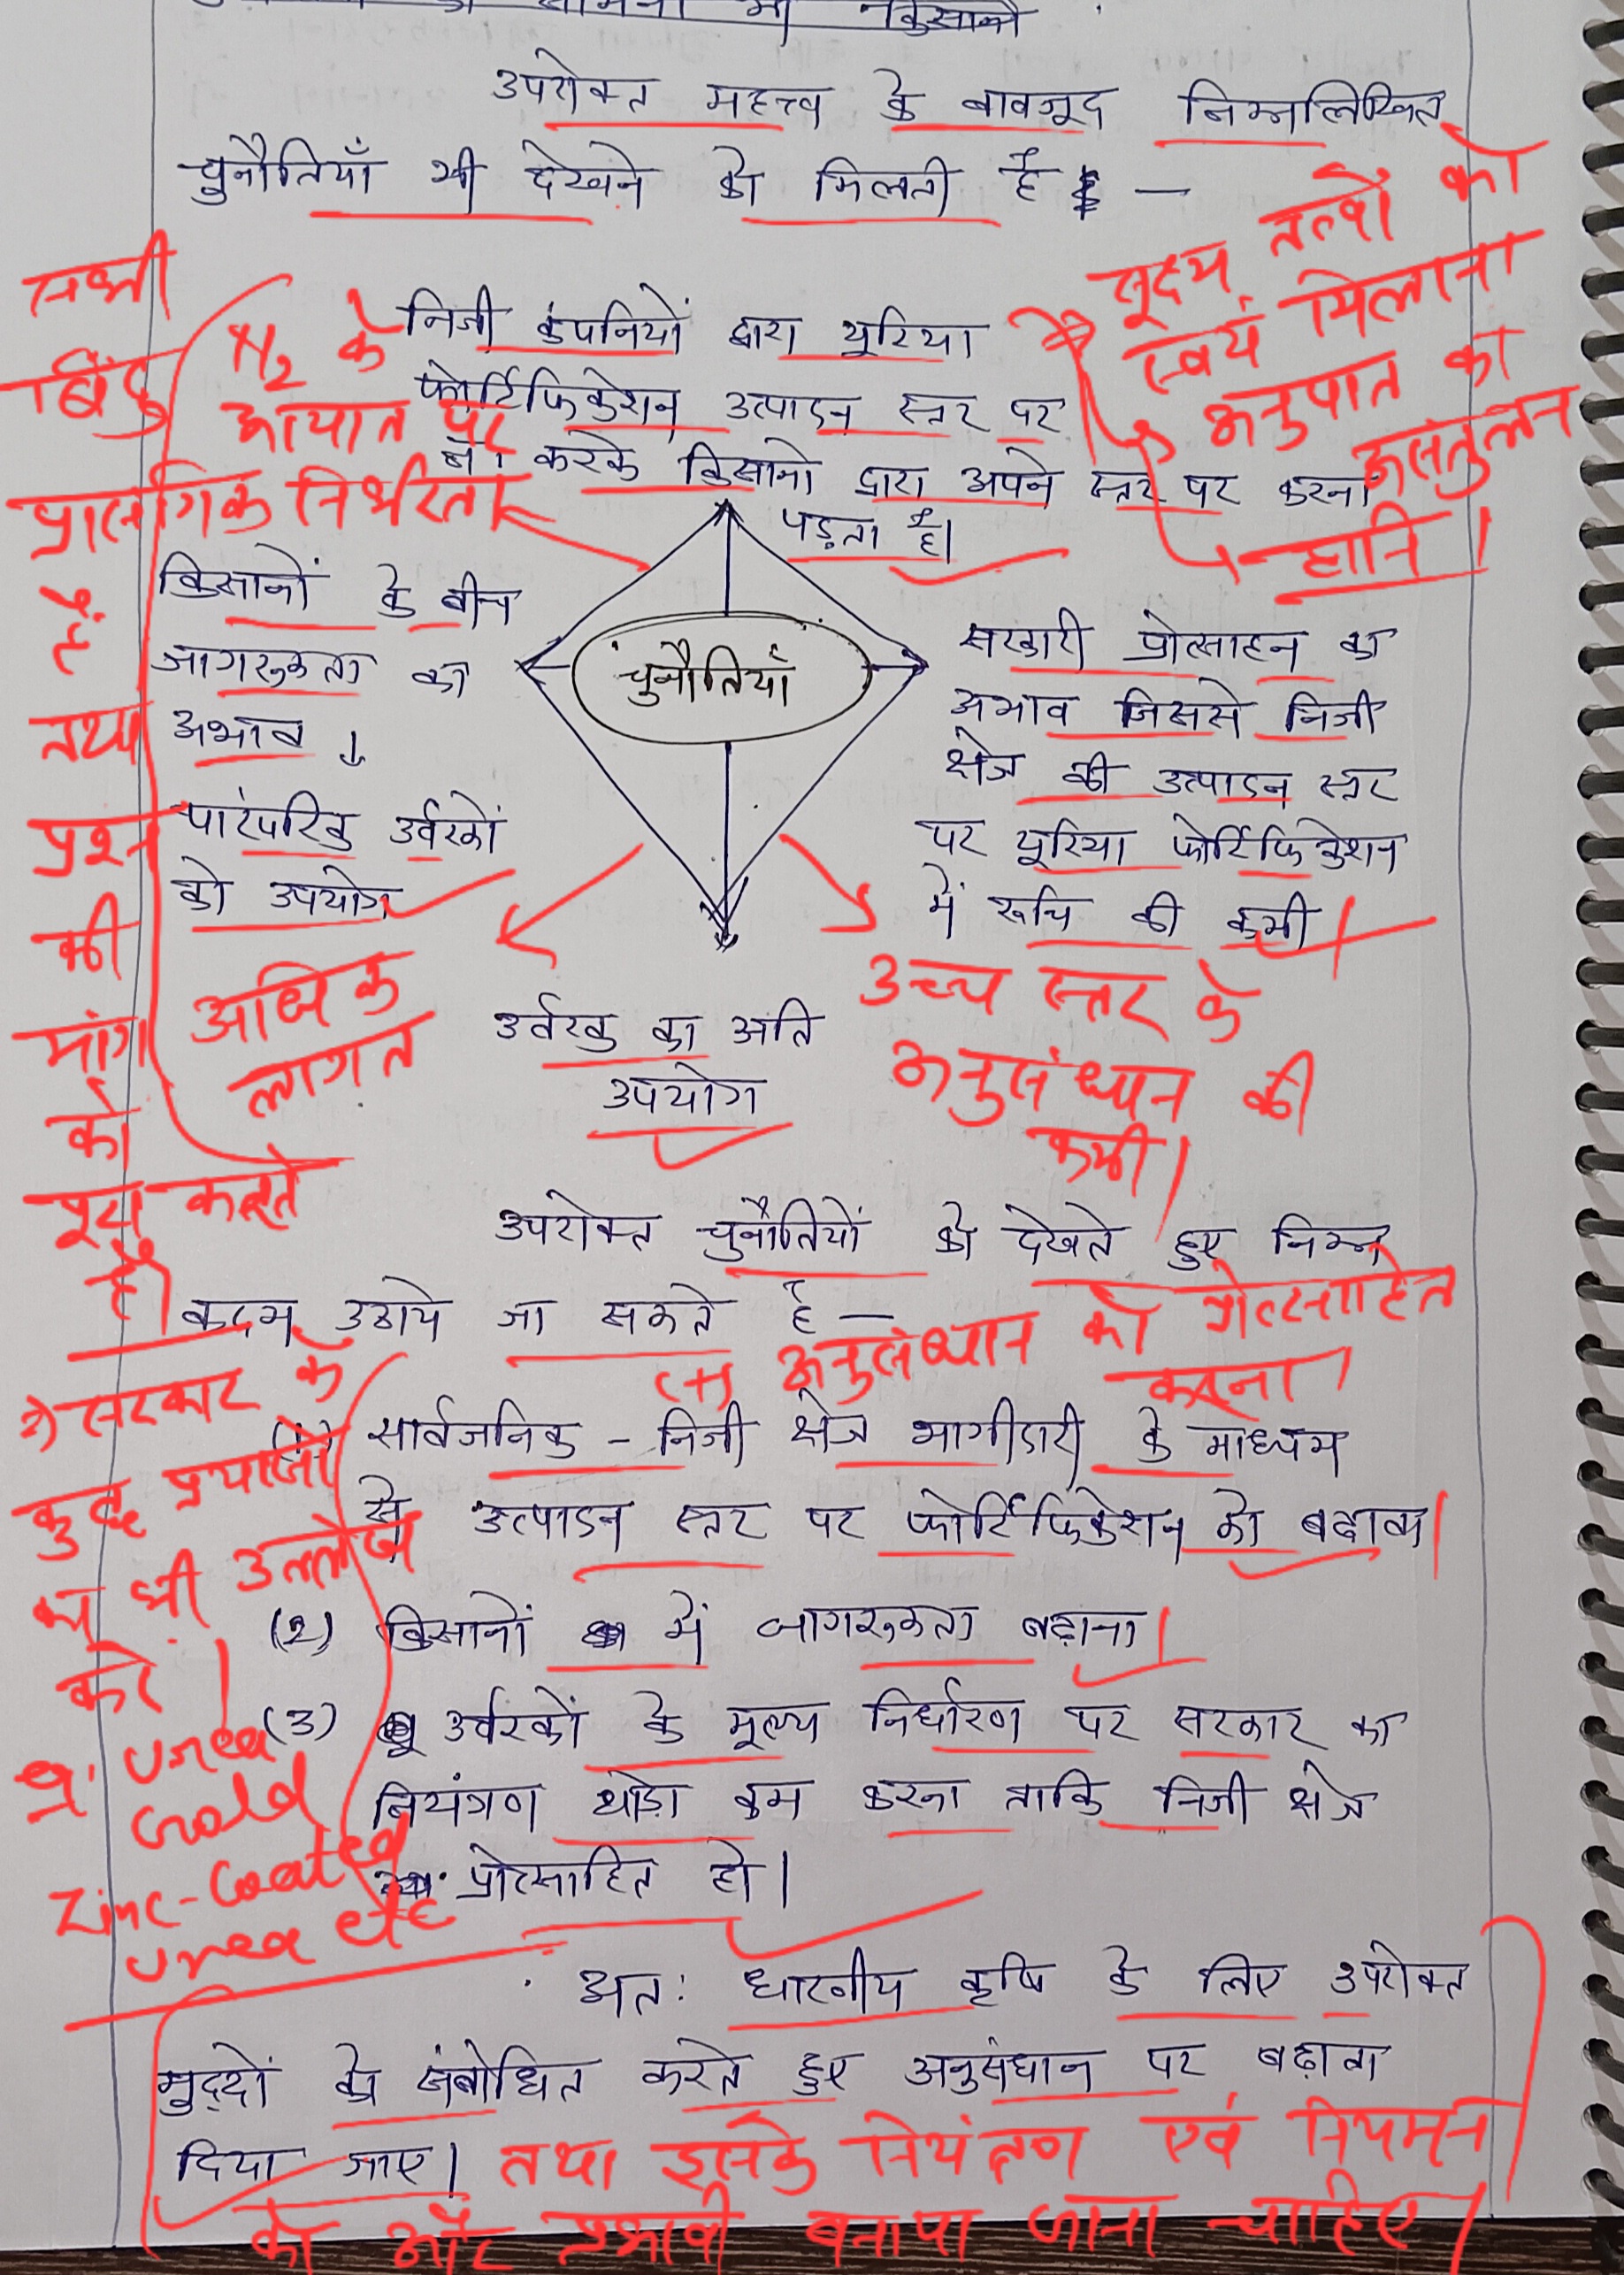 उपरोक्त महत्त्व के बावजूद निम्नलिखित
चुनौतियाँ भी देखने को मिलती है –
सूक्ष्म तत्वों को
स्वयं मिलाना
अनुपात का
असंतुलन
हानि।
निजी कंपनियों द्वारा यूरिया
फोर्टिफिकेशन उत्पादन स्तर पर
न करके किसानो द्वारा अपने स्तर पर करना
पड़ता है।
N2 के
आयात पर
निर्भरता
किसानों के बीच
जागरुकता का
अभाव ↓
पारंपरिक उर्वरकों
को उपयोग
चुनौतियाँ
सरकारी प्रोत्साहन का
अभाव जिससे निजी
क्षेत्र की उत्पादन स्तर
पर यूरिया फोर्टिफिकेशन
में रूचि की कमी
अधिक
लागत
उर्वरक का अति
उपयोग
उच्च स्तर के
अनुसंधान की
कमी।
सभी
बिंदु
प्रासंगिक
हैं
तथा
प्रश्न
की
मांग
को
पूरा करते
हैं।
उपरोक्त चुनौतियों को देखते हुए निम्न
कदम उठाये जा सकते है –
(+) अनुसंधान को प्रोत्साहित
करना।
→ सरकार के
कुछ प्रयासों
का भी उल्लेख
करें।
Urea
Gold
Zinc-Coated
Urea etc
(1) सार्वजनिक – निजी क्षेत्र भागीदारी के माध्यम
से उत्पादन स्तर पर फोर्टिफिकेशन को बढ़ावा।
(2) किसानों में जागरुकता बढ़ाना।
(3) उर्वरकों के मूल्य निर्धारण पर सरकार का
नियंत्रण थोड़ा कम करना ताकि निजी क्षेत्र
प्रोत्साहित हो।
अतः धारणीय कृषि के लिए उपरोक्त
मुद्दों को संबोधित करते हुए अनुसंधान पर बढ़ावा
दिया जाए। तथा इसके नियंत्रण एवं नियमन
को और प्रभावी बनाया जाना चाहिए।